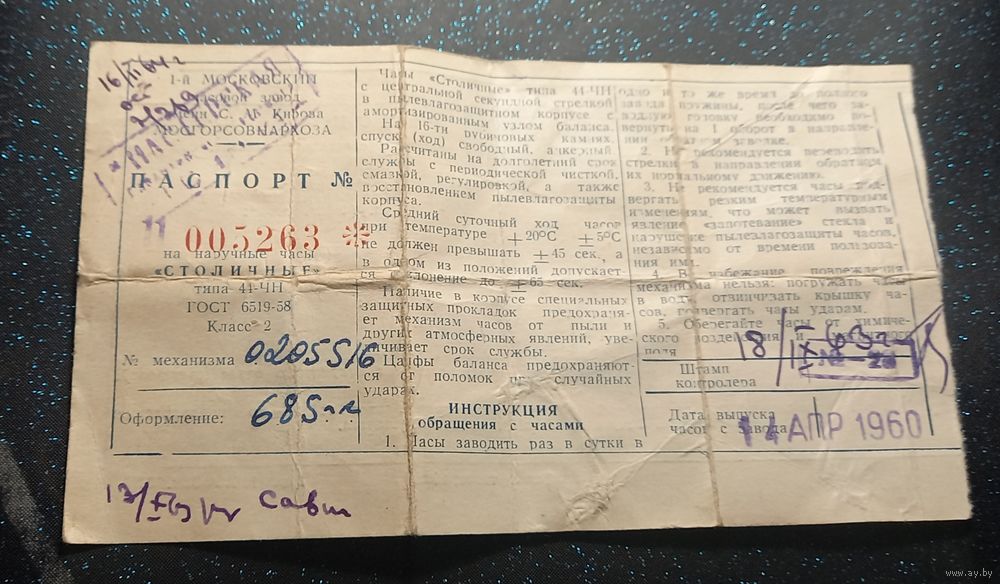 1-й МОСКОВСКИЙ
часовой завод
имени С. М. Кирова
МОСГОРСОВНАРХОЗА
ПАСПОРТ №
11
005263 *
на наручные часы
«СТОЛИЧНЫЕ»
типа 44-ЧН
ГОСТ 6519-58
Класс 2
№ механизма 0205516
Оформление: 685
Часы «Столичные» типа 44-ЧН
с центральной секундной стрелкой
в пылевлагозащитном корпусе с
амортизированным узлом баланса.
На 16-ти рубиновых камнях,
спуск (ход) свободный, анкерный.
Расчитаны на долголетний срок
службы с периодической чисткой,
смазкой, регулировкой, а также
восстановлением пылевлагозащиты
корпуса.
Средний суточный ход часов
при температуре +20°С ±5°С
не должен превышать ±45 сек., а
в одном из положений допускает-
ся отклонение до ±65 сек.
Наличие в корпусе специальных
защитных прокладок предохраня-
ет механизм часов от пыли и
других атмосферных явлений, уве-
личивает срок службы.
Цапфы баланса предохраняют-
ся от поломок при случайных
ударах.
ИНСТРУКЦИЯ
обращения с часами
1. Часы заводить раз в сутки в
одно и то же время до полного
завода пружины, после чего за-
водную головку необходимо по-
вернуть на 1 оборот в направле-
нии обратном заводке.
2. Не рекомендуется переводить
стрелки в направлении обратном
их нормальному движению.
3. Не рекомендуется часы под-
вергать резким температурным
изменениям, что может вызвать
явление «запотевание» стекла и
нарушение пылезащиты часов,
независимо от времени пользова-
ния ими.
4. В избежание повреждения
механизма нельзя: погружать часы
в воду, отвинчивать крышку ча-
сов, подвергать часы ударам.
5. Оберегайте часы от химиче-
ского воздействия и
поля
Штамп
контролера
Дата выпуска
часов с завода
АПР 1960
www.ay.by